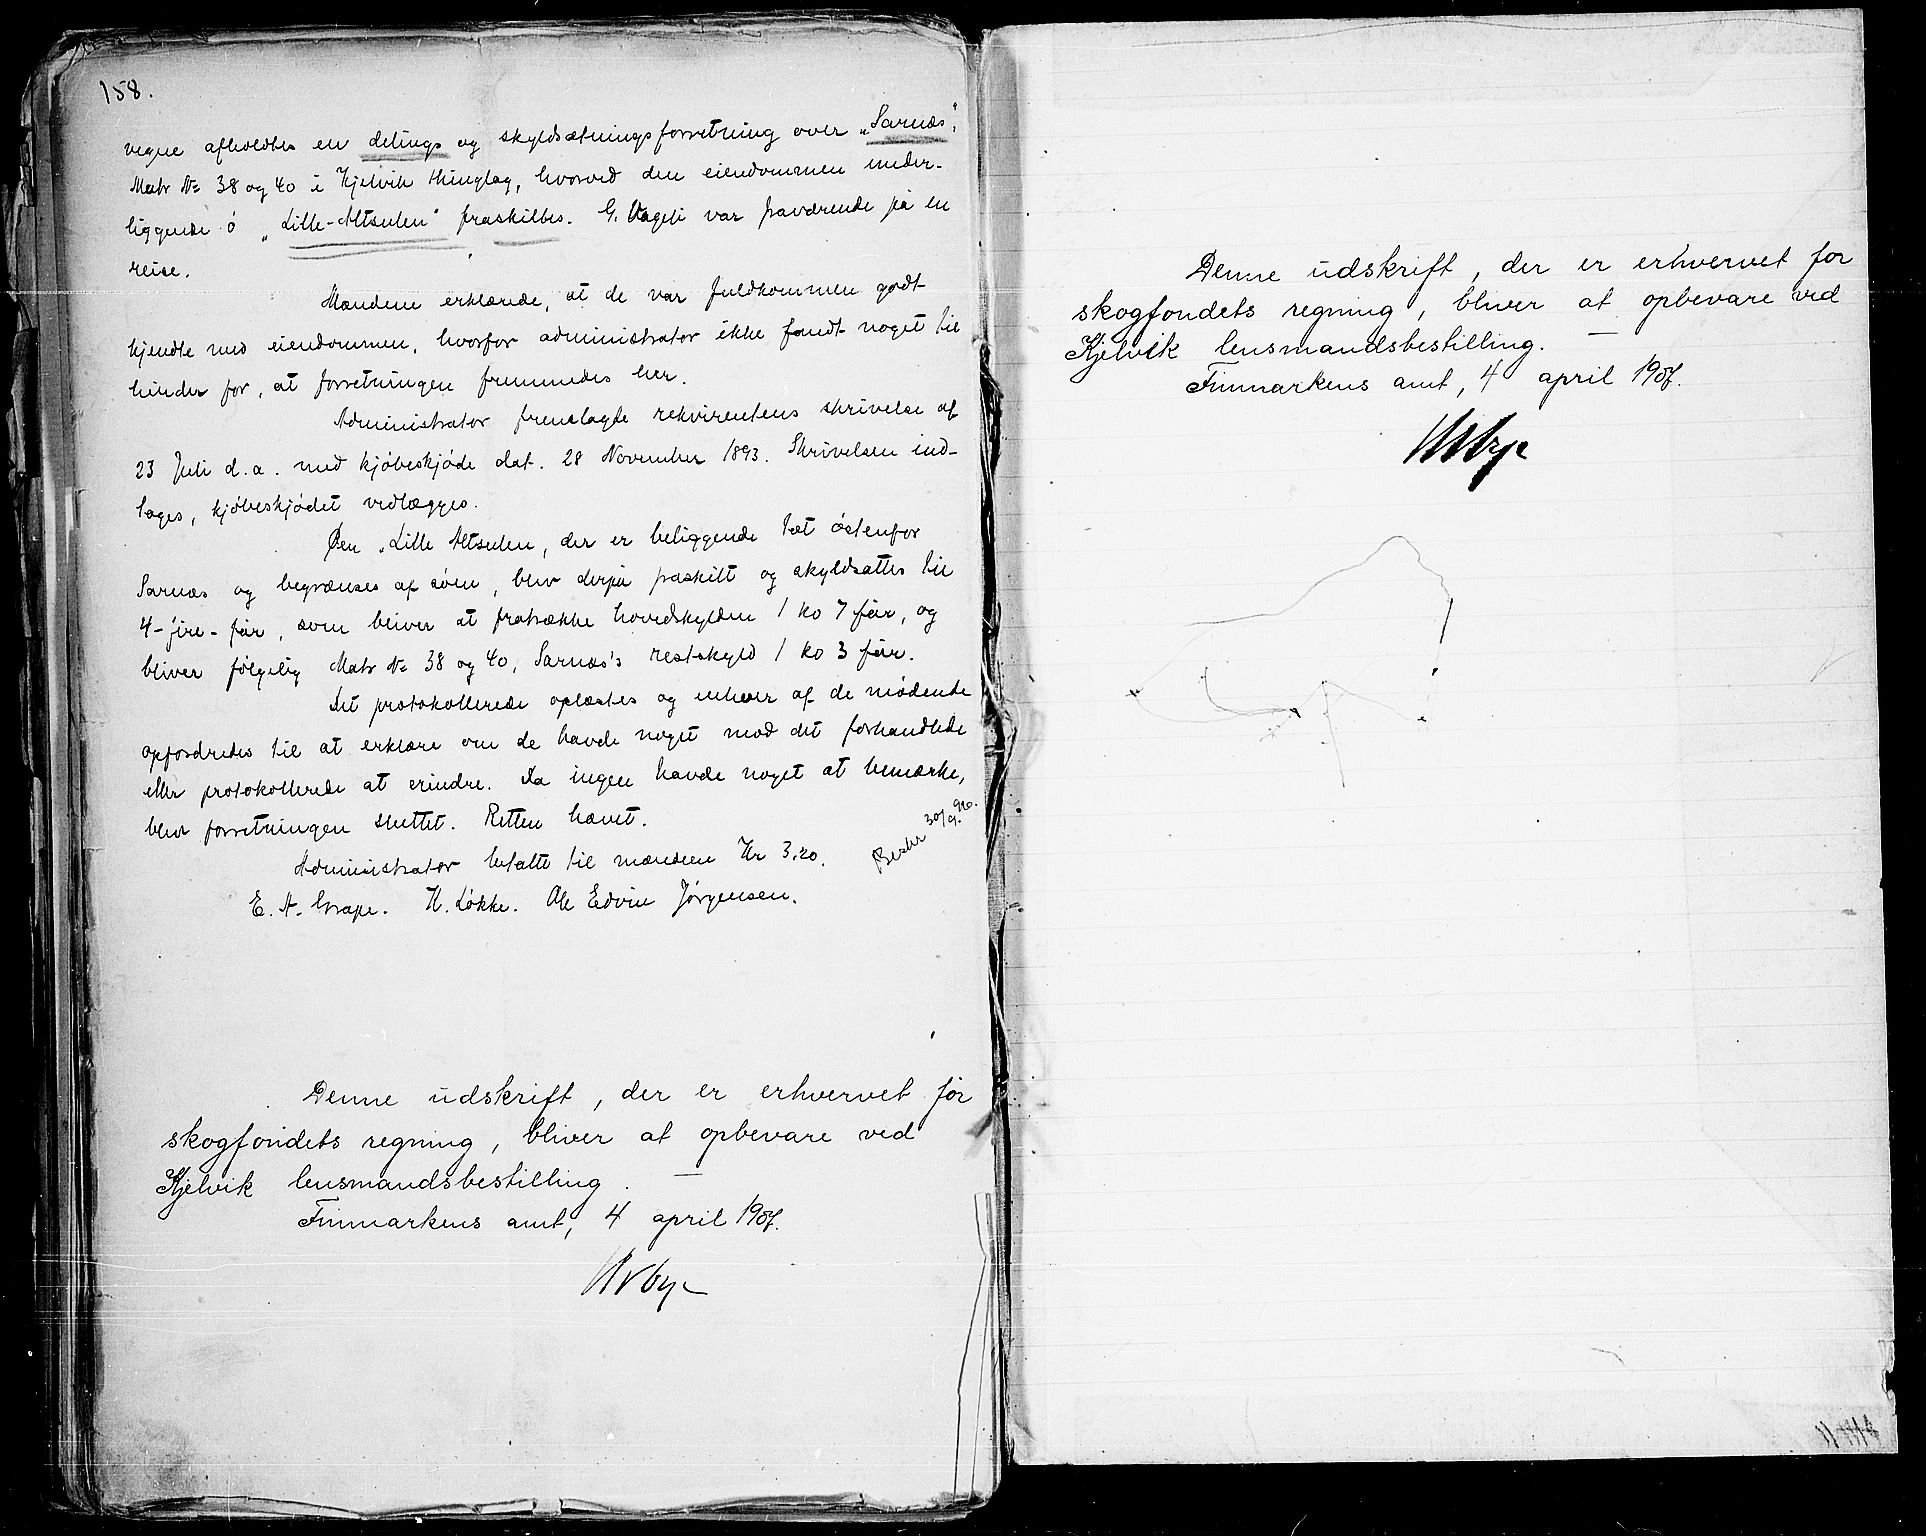 158.
vegne afholdtes en delings og skyldsætningsforretning over „Sarnæs",
Matr № 38 og 40 i Kjelvik thinglag, hvorved den eiendommen under-
liggende ö „Lille-Altsulen" fraskiltes. G. Vageli var fraværende på en
reise.
Mændene erklærede, at de var fuldkommen godt
kjendte med eiendommen, hvorfor administrator ikke fandt noget til
hinder for, at forretningen fremmedes her.
Administrator fremlagde rekvirentens skrivelse af
23 Juli d.a. med kjöbeskjöde dat. 28 November 1893. Skrivelsen ind-
tages, kjöbeskjödet vedlægges.
Øen „Lille Altsulen, der er beliggende tæt östenfor
Sarnæs og begrænses af söen, blev derpå fraskilt og skyldsattes til
4-fire-får, som bliver at fratrække hovedskylden 1 ko 7 får, og
bliver fölgelig Matr № 38 og 40, Sarnæs's restskyld 1 ko 3 får.
Det protokollerede oplæstes og enhver af de mödende
opfordredes til at erklære om de havde noget mod det forhandlede
eller protokollerede at erindre. Da ingen havde noget at bemærke,
blev forretningen sluttet. Retten hævet.
Administrator betalte til mændene Kr 3,20.
Beskr 30/9.96.
E. A. Grape. H. Lökke. Ole Edvin Jörgensen.
Denne udskrift, der er erhvervet for
skogfondets regning, bliver at opbevare ved
Kjelvik lensmandsbestilling. —
Finmarkens amt, 4 april 1907.
Denne udskrift, der er erhvervet for
skogfondets regning, bliver at opbevare ved
Kjelvik lensmandsbestilling. —
Finmarkens amt, 4 april 1907.